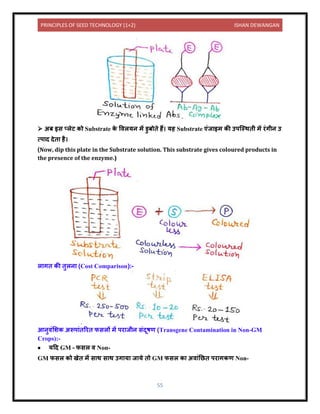 PRINCIPLES OF SEED TECHNOLOGY (1+2) ISHAN DEWANGAN
Plate
E E
Solution of Enzyme linked Abs.
Ab-Ag-Ab Complex
➢ अब इस प्लेट को Substrate के विलयन में डुबोते हैं। यह Substrate एंजाइम की उपस्थिती में रंगीन उ
त्पाद देता है।
(Now, dip this plate in the Substrate solution. This substrate gives coloured products in
the presence of the enzyme.)
Plate
E + S → P
Colour less Colour
Substrate solution
Colourless solution
Colour
लागत की तुलना (Cost Comparison):-
PCR test Strip test ELISA test
Rs. 250-500 Per test Rs. 10-20 Per test Rs. 20-150 Per test
आनुवंशिक अरूपांतरित फसलों में पराजीन संदूषण (Transgene Contamination in Non-GM
Crops):-
• यदि GM - फसल व Non-
GM फसल को खेत में साथ साथ उगाया जाये तो GM फसल का अवांछित परागकण Non-
55